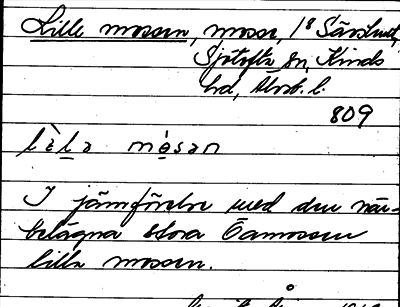 Lille mossen, mosse, 1/8
Sjötofta sn, Kinds
hd, Älvsb. l.
809
lìla mòsan
I jämförelse med den när-
belägna stora Öamossen
lilla mossen.